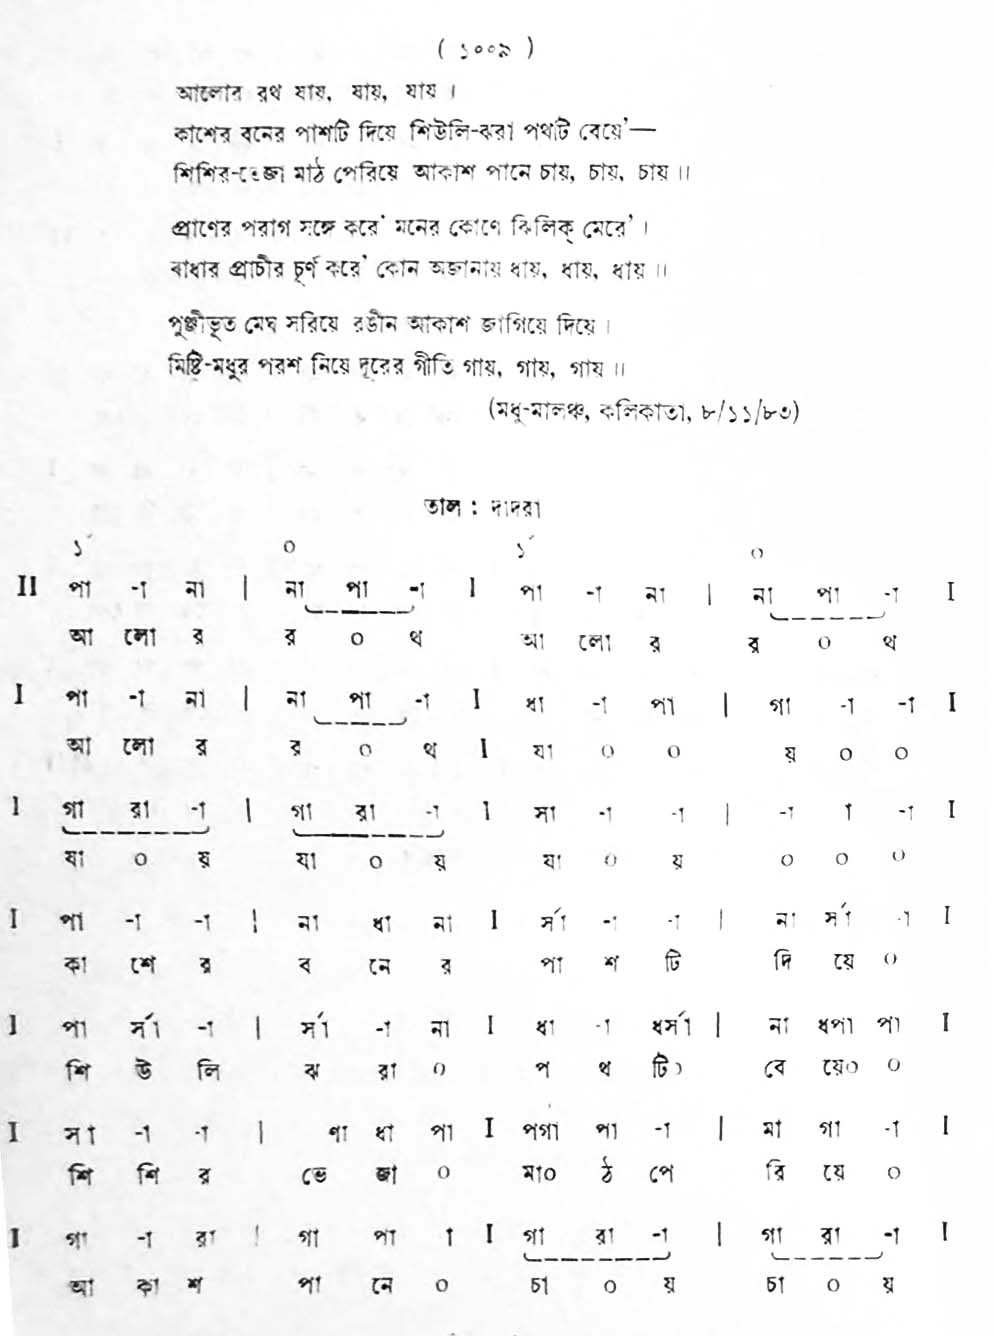 ( ১০০৯ )
আলোর রথ যায়, যায়, যায় ।
কাশের বনের পাশটি দিয়ে শিউলি-ঝরা পথটি বেয়ে'—
শিশির-ভেজা মাঠ পেরিয়ে আকাশ পানে চায়, চায়, চায় ॥
প্রাণের পরাগ সঙ্গে করে' মনের কোণে ঝিলিক্ মেরে' ।
বাধার প্রাচীর চূর্ণ করে' কোন অজানায় ধায়, ধায়, ধায় ॥
পুঞ্জীভূত মেঘ সরিয়ে রঙীন আকাশ জাগিয়ে দিয়ে ।
মিষ্টি-মধুর পরশ নিয়ে দূরের গীতি গায়, গায়, গায় ॥
(মধু-মালঞ্চ, কলিকাতা, ৮/১১/৮৩)
তাল : দাদরা
১´ ০ ১´ ০
II পা -া না | না পা -া I পা -া না | না পা -া I
আ লো র র ০ থ আ লো র র ০ থ
I পা -া না | না পা -া I ধা -া পা | গা -া -া I
আ লো র র ০ থ I যা ০ ০ য় ০ ০
I গা রা -া | গা রা -া I সা -া -া | -া া -া I
যা ০ য় যা ০ য় যা ০ য় ০ ০ ০
I পা -া -া | না ধা না I র্সা -া -া | না র্সা -া I
কা শে র ব নে র পা শ টি দি য়ে ০
I পা র্সা -া | র্সা -া না I ধা -া ধর্সা | না ধপা পা I
শি উ লি ঝ রা ০ প থ টি০ বে য়ে০ ০
I সা -া -া | ণা ধা পা I পগা পা -া | মা গা -া I
শি শির ভে জা ০ মা০ ঠ পে রি য়ে ০
I গা -া রা | গা পা া I গা রা -া | গা রা -া I
আ কা শ পা নে ০ চা ০ য় চা ০ য়